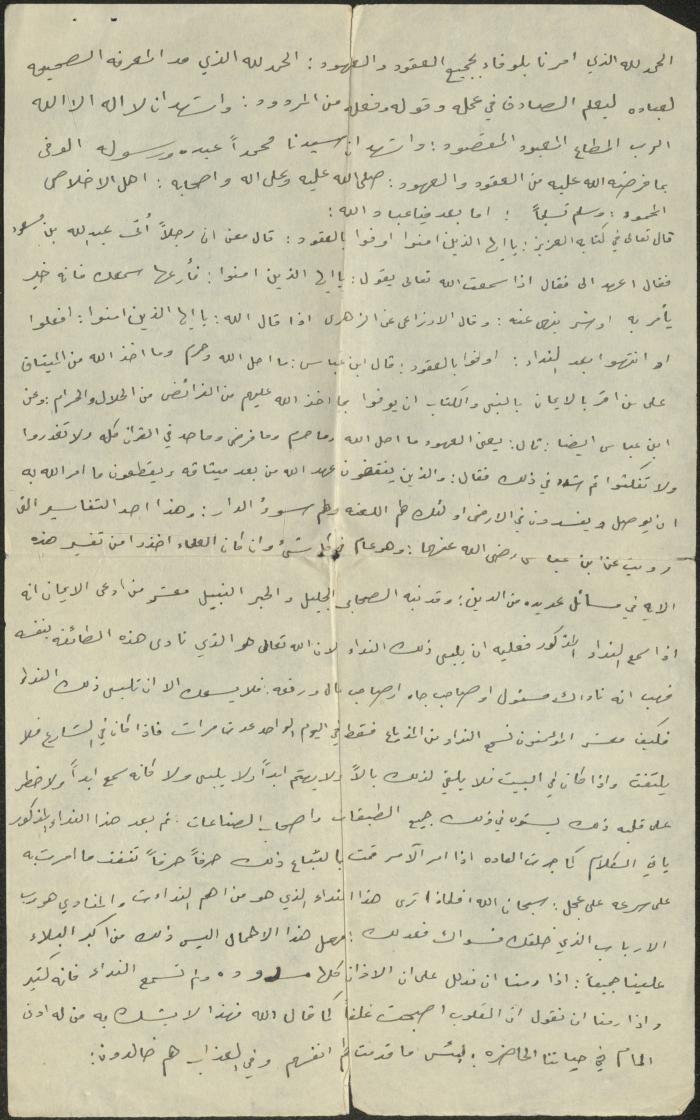 الحمد لله الذي امرنا بلوفاء بجميع العقود والعهود : الحمد لله الذي مد المعرفه الصحيحه
لعباده ليعلم الصادق في عمله وقوله وفعله من المردود : واشهد ان لا اله الا الله
الرب المطاع المعبود المقصود : واشهد ان سيدنا محمداً عبده ورسوله الوفى
بما فرضه الله عليه من العقود والعهود : صلى الله عليه وعلى اله واصحابه : اهل الاخلاص
المحمود : وسلم تسليماً : اما بعد فيا عباد الله :
قال تعالى في كتابه العزيز : يا ايها الذين امنوا اوفوا بالعقود : قال معن ان رجلاً أتى عبد الله بن مسعود
فقال اعهد الى فقال اذا سمعت الله تعالى يقول : يا ايها الذين امنوا : فأرعها سمعك فانه خير
يأمر به او شر ينهى عنه : وقال الاوزاعى عن الزهرى اذا قال الله : يا ايها الذين امنوا : افعلوا
او انتهوا بعد النداء : اوفوا بالعقود : قال ابن عباس : ما احل الله وحرم وما اخذ الله من الميثاق
على من اقر بالايمان بالنبى والكتاب ان يوفوا بما اخذ الله عليهم من الفرائض من الحلال والحرام : وعن
ابن عباس ايضا : قال : يعنى العهود ما احل الله وما حرم وما فرض وما حد في القران كله ولا تغدروا
ولا تنكثوا ثم شدد في ذلك فقال : والذين ينقضون عهد الله من بعد ميثاقه ويقطعون ما امر الله به
ان يوصل ويفسدون في الارض اولئك لهم اللعنه ولهم سوء الدار : وهذا احد التفاسير التى
رويت عن ابن عباس رضى الله عنهما : وهو عام في كل شئ وان كان العلماء اخذوا من تفسير هذه
الايه في مسائل عديده من الدين : وقد نبه الصحابى الجليل والحبر النبيل معشر من ادعى الايمان انه
اذا سمع النداء المذكور فعليه ان يلبى ذلك النداء لان الله تعالى هو الذي نادى هذه الطائفه بنفسه
فهب انه ناداك مسئول او صاحب جاه او صاحب مال ورفعه : فلا يسعك الا ان تلبى ذلك النداء
فكيف معشر المؤمنون نسمع النداء من المذياع فقط في اليوم الواحد عدة مرات فاذا كان في الشارع فلا
يلتفت واذا كان في البيت فلا يلقى لذلك بالاً ولا يهتم ابداً ولا يلبى ولا كانه سمع ابداً ولا خطر
على قلبه ذلك يستون في ذلك جميع الطبقات واصحاب الصناعات : ثم بعد هذا النداء المذكور
ياتي الكلام كما جرت العاده اذا امر الآمر قمت باتباع ذلك حرفاً حرفاً تنفذ ما امرت به
على سرعه على عجل : سبحان الله افلماذا ترى هذا النداء الذي هو من اهم النداءت والمنادي هو رب
الارباب الذي خلقك فسواك فعدلك : فهمل هذا الاهمال اليس ذلك من اكبر البلاء
علينا جميعاً : اذا رمنا ان ندلل على ان الاذان كلها مسدوده ولم تسمع النداء فانه كثير
واذا رمنا ان نقول ان القلوب اصبحت غلفاً كما قال الله فهذا لا يشك به من له ادنى
المام في حياتنا الحاضره : لبئس ما قدمت لهم انفسهم وفي العذاب هم خالدون :